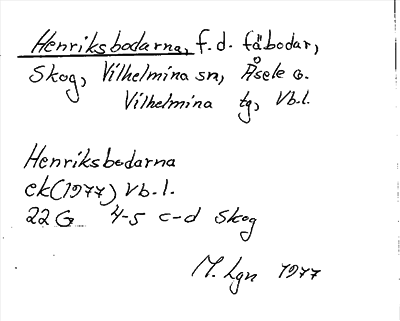 Henriksbodarna, f.d. fäbodar,
Skog, Vilhelmina sn, Åsele o.
Vilhelmina tg, Vb.l.
Henriksbodarna
ek (1977) Vb.l.
22 G 4-5 c-d Skog
M. Lgn 1977